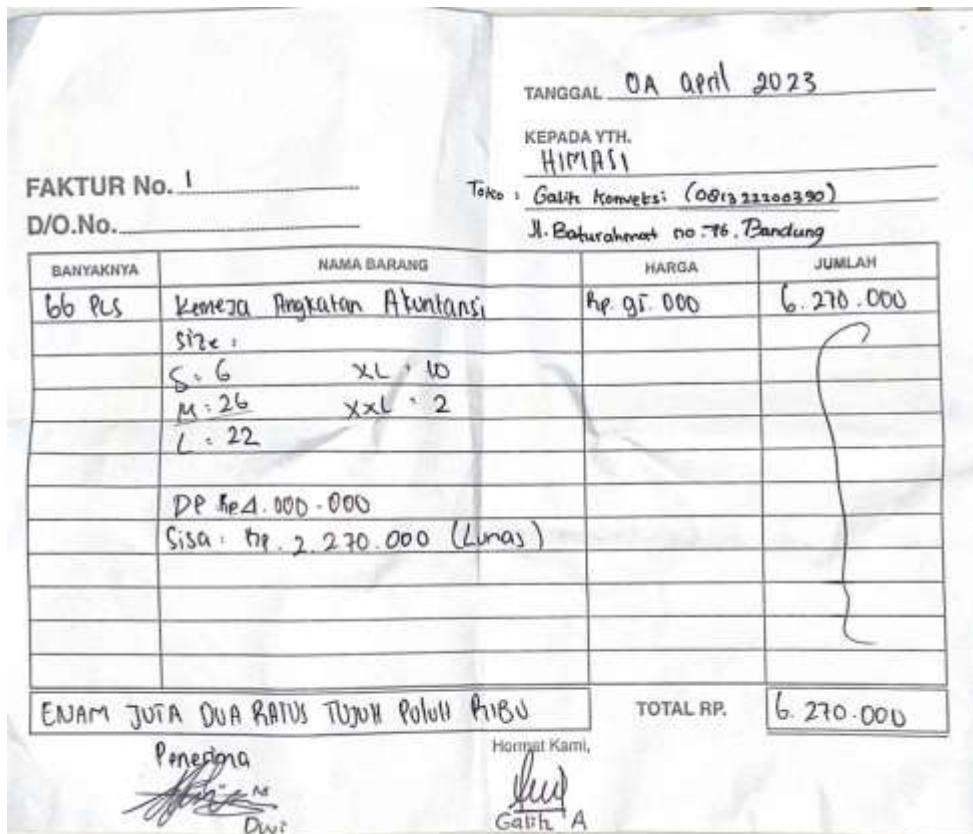 TANGGAL 04 april 2023
KEPADA YTH.
HIMASI
FAKTUR No. 1
Toko : Galih Konveksi (081322200390)
D/O.No.
Jl. Baturahmat no. 76. Bandung
BANYAKNYA NAMA BARANG HARGA JUMLAH
66 PCS Kemeja Angkatan Akuntansi Rp. 95.000 6.270.000
Size :
S : 6 XL : 10
M : 26 XXL : 2
L : 22
DP Rp 4.000.000
Sisa : Rp. 2.270.000 (Lunas)
ENAM JUTA DUA RATUS TUJUH PULUH RIBU TOTAL RP. 6.270.000
Penerima Hormat Kami,
Dwi Galih A